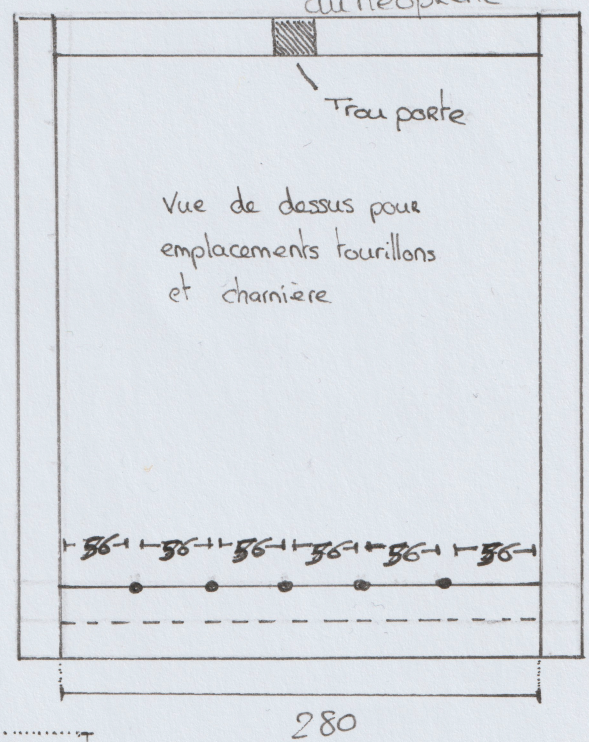 du néoprène
Trou porte
Vue de dessus pour
emplacements tourillons
et charnière
56 56 56 56 56 56
280